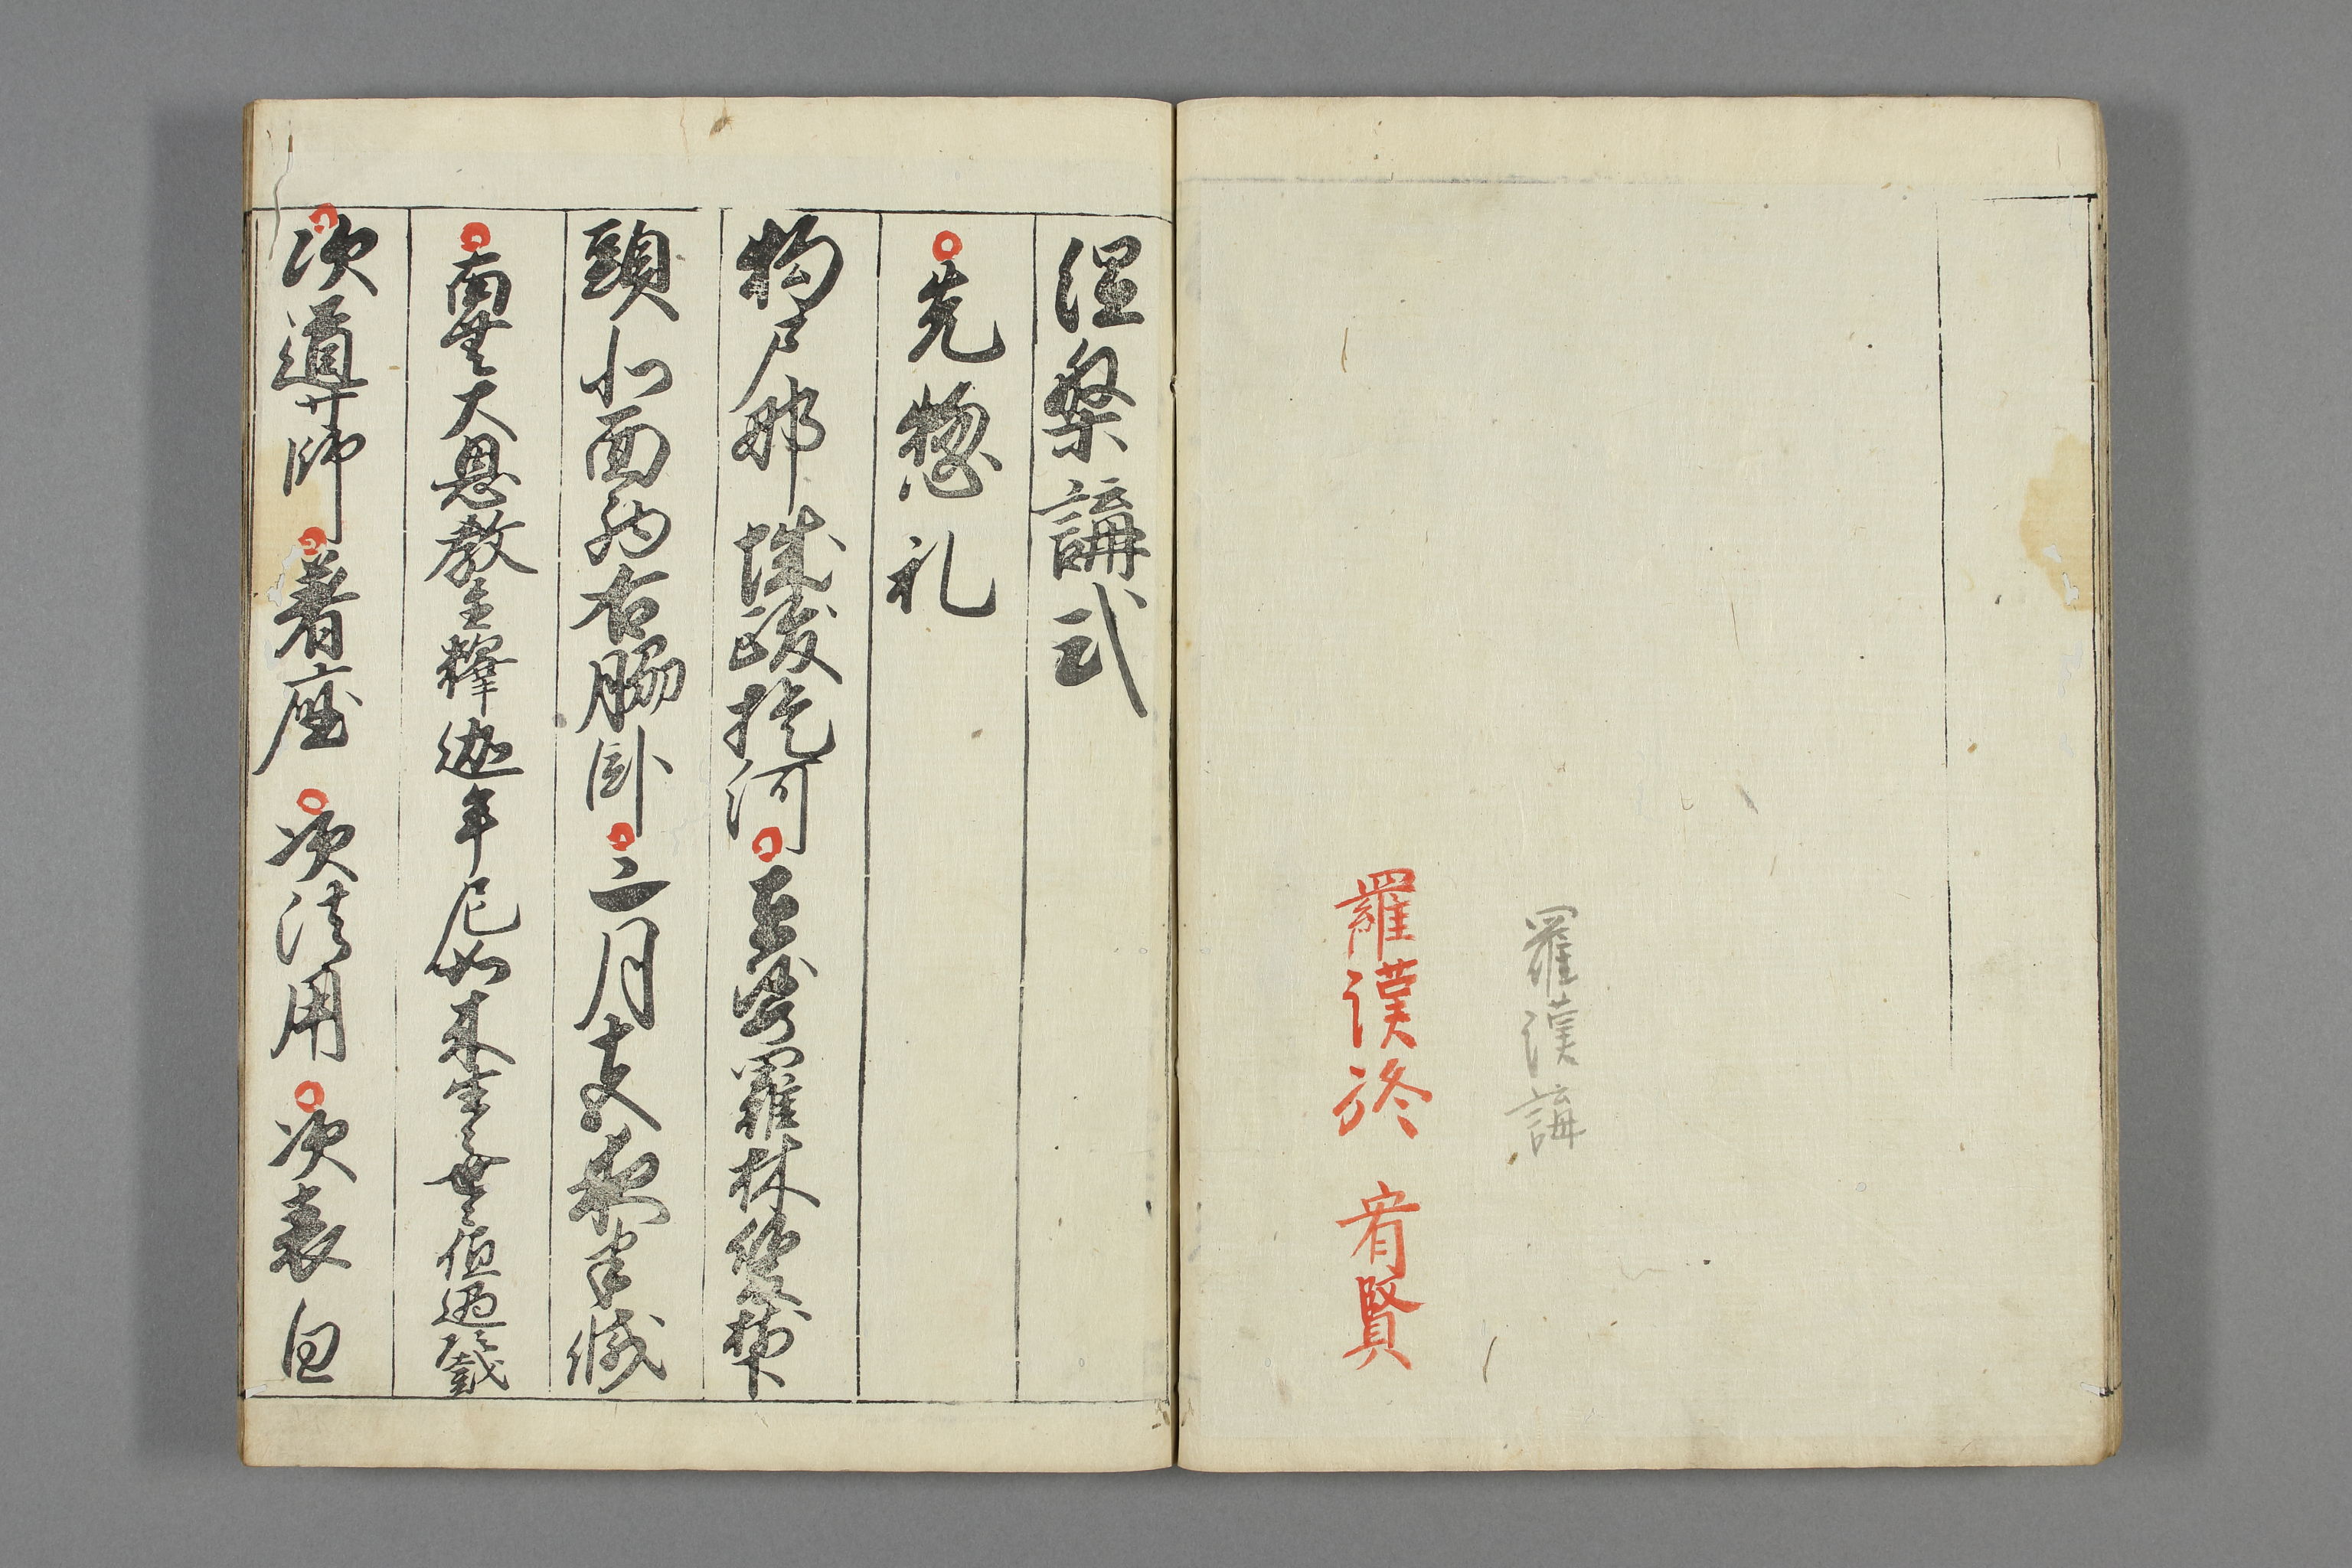 羅漢講
羅漢終 宥賢
涅槃講式
先惣礼
拘尸那城跋提河在娑羅林雙樹下
頭北面西右脇臥二月十五夜半滅
南無大恩教主釋迦牟尼如来生々世々値遇頂戴
次導師著座 次法用 次表白